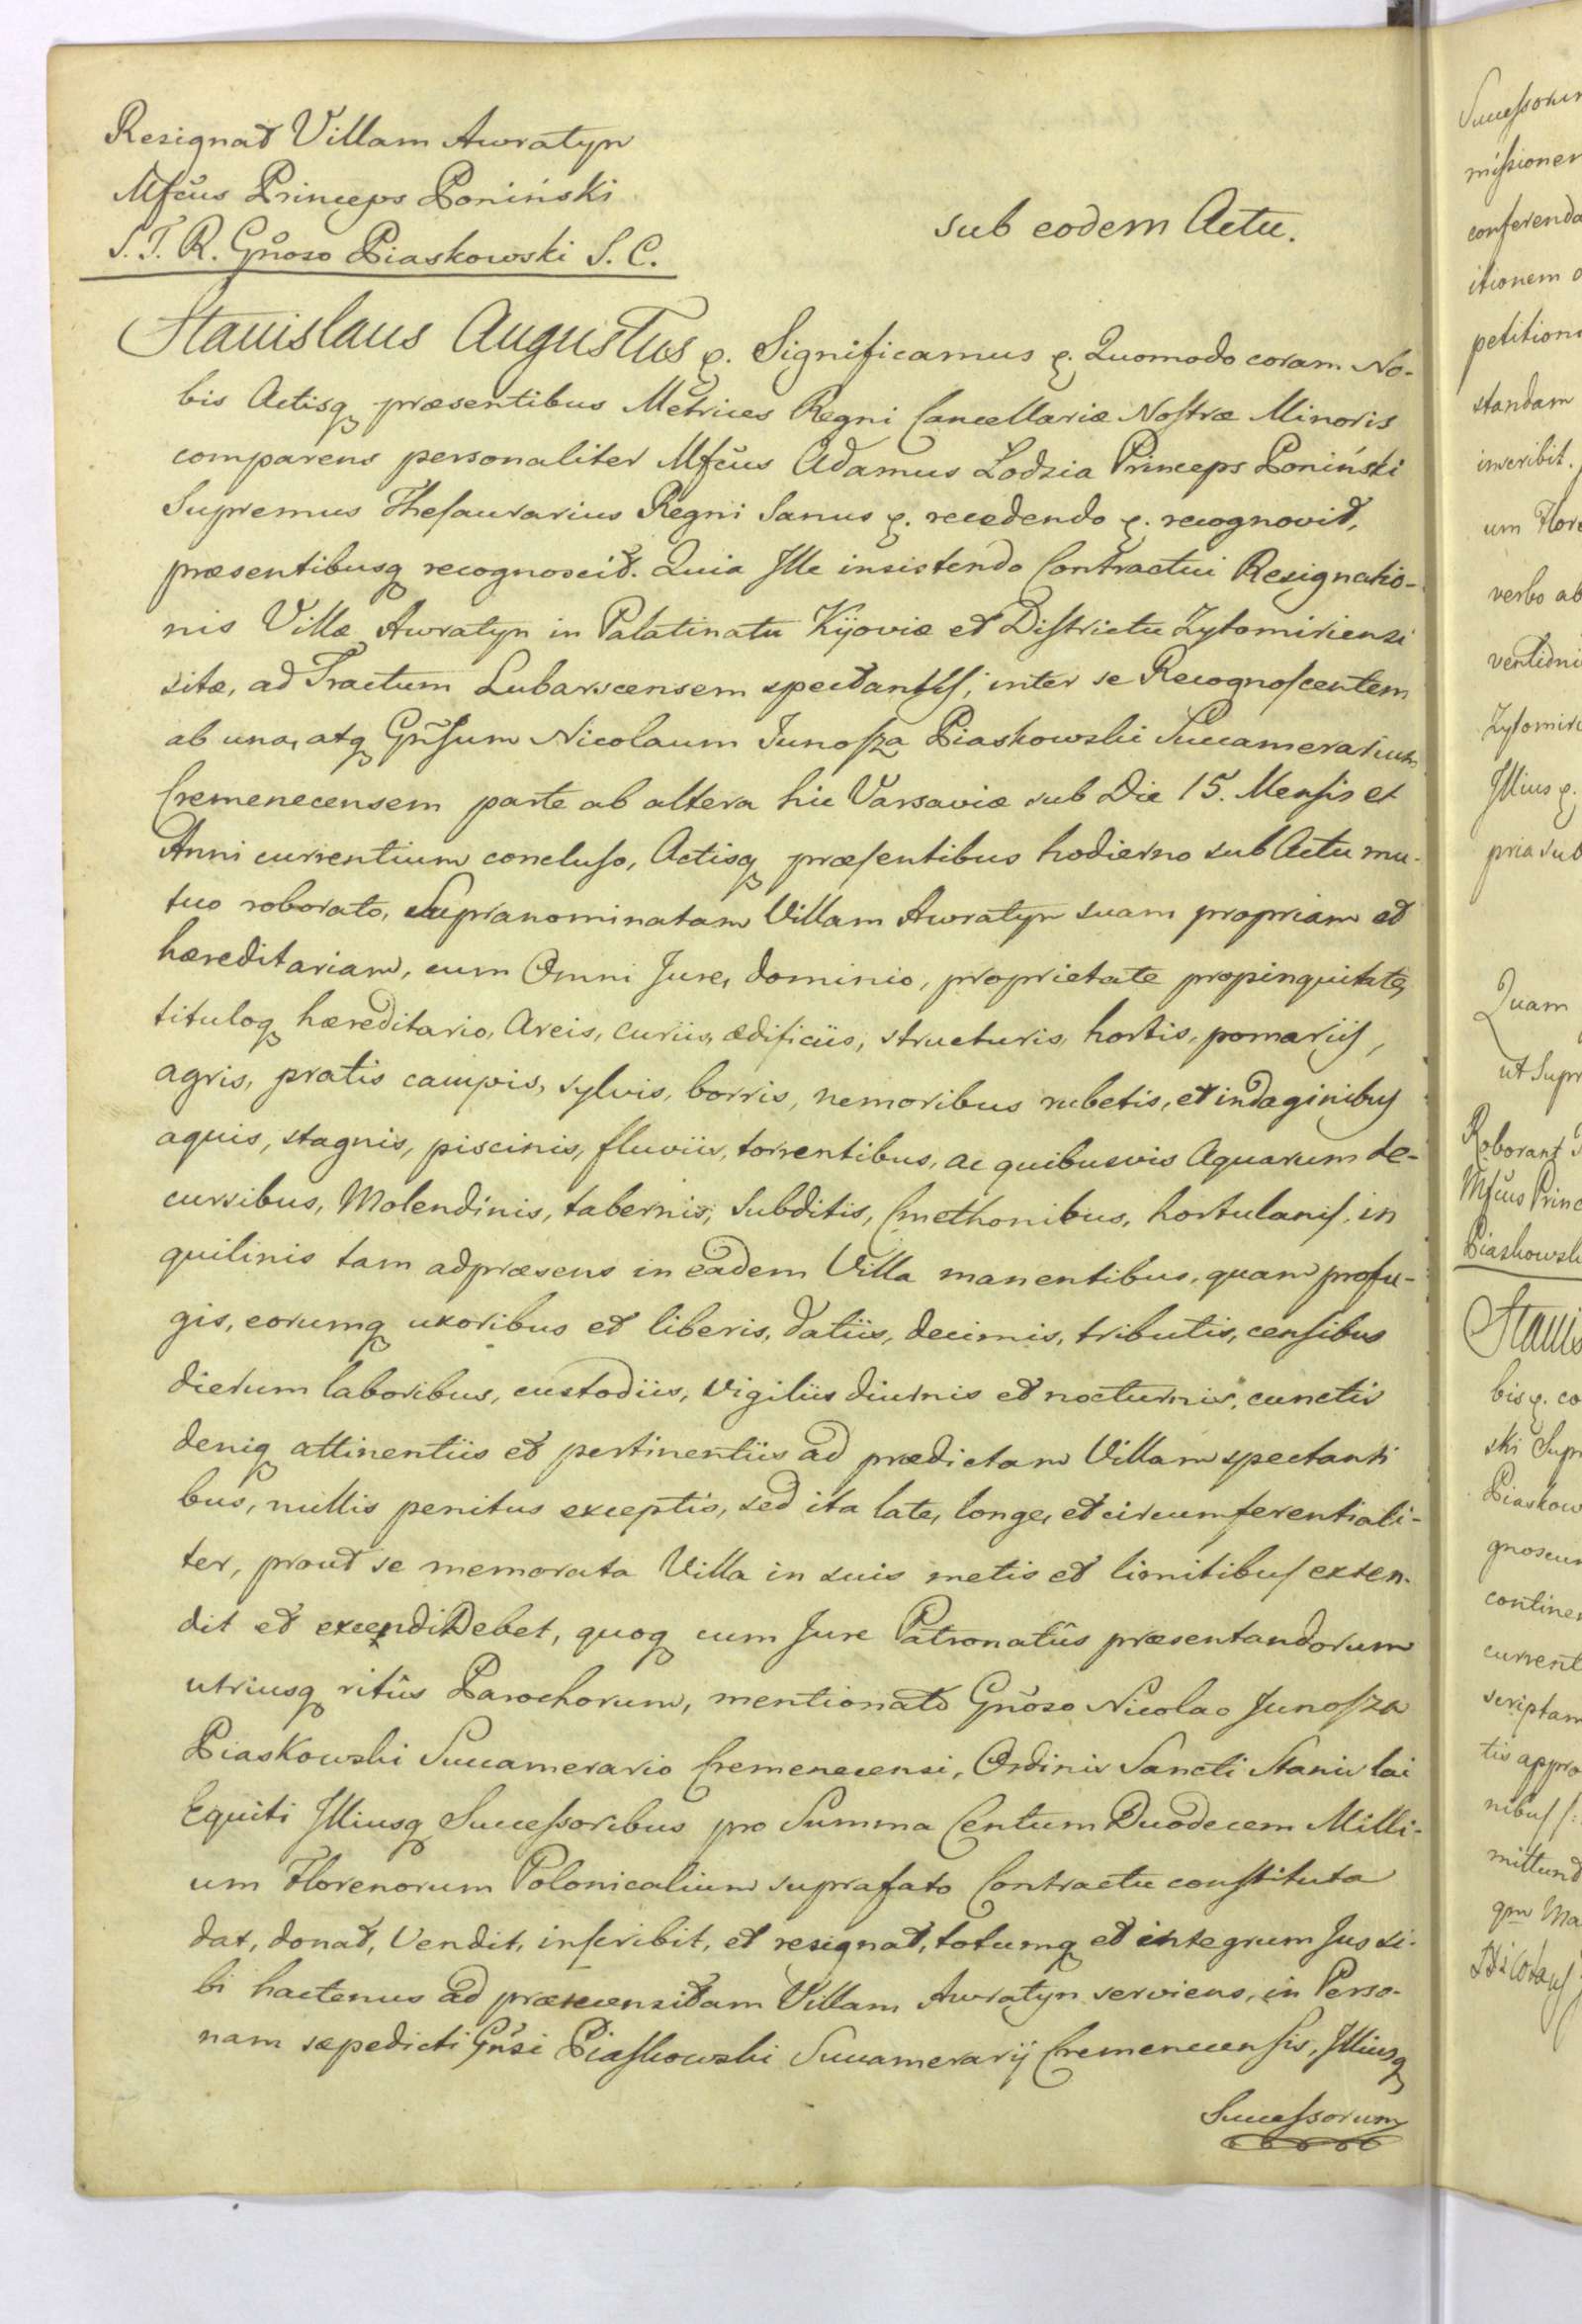 Resignat Villam Awratyn
Mfcus Princeps Poniński
S. T. R. Gnoso Piaskowski S. C.
sub eodem Actu.
Stanislaus Augustus ꝛ. Significamus ꝛ. Quomodo coram No-
bis Actisq præsentibus Metrices Regni Cancellariæ Nostræ Minoris
comparens personaliter Mfcus Adamus Lodzia Princeps Poniński
Supremus Thesaurarius Regni Sanus ꝛ. recedendo ꝛ. recognovit,
præsentibusq recognoscit. Quia Ille insistendo Contractui Resignatio-
nis Villæ Awratyn in Palatinatu Kijoviæ et Districtu Zytomiriensi
sitæ, ad Tractum Lubarscensem spectantis, inter se Recognoscentem
ab una, atq Gnsum Nicolaum Junosza Piaskowski Succamerarium
Cremenecensem parte ab altera hic Varsaviæ sub Die 15. Mensis et
Anni currentium concluso, Actisq præsentibus hodierno sub Actu mu-
tuo roborato, Supranominatam Villam Awratyn suam propriam et
hæreditariam, cum Omni Jure, dominio, proprietate propinquitate,
tituloq hæreditario, Areis, curiis, ædificiis, structuris, hortis, pomariis,
agris, pratis campis, sylvis, borris, nemoribus rubetis, et indaginibus
aquis, stagnis, piscinis, fluviis, torrentibus, ac quibusvis Aquarum de-
cursibus, Molendinis, tabernis, Subditis, Cmethonibus, hortulanis, in
quilinis tam adpræsens in eadem Villa manentibus, quam profu-
gis, eorumq uxoribus et liberis, datiis, decimis, tributis, censibus
dierum laboribus, custodiis, vigiliis diurnis et nocturnis, cunctis
deniq attinentiis et pertinentiis ad prædictam Villam spectanti
bus, nullis penitus exceptis, sed ita late, longe, et circumferentiali-
ter, prout se memorata Villa in suis metis et limitibus exten-
dit et extendi Debet, quoq cum Jure Patronatûs præsentandorum
utriusq ritûs Parochorum, mentionato Gnoso Nicolao Junosza
Piaskowski Succamerario Cremenecensi, Ordinis Sancti Stanislai
Equiti Illiusq Successoribus pro Summa Centum Duodecem Milli-
um Florenorum Polonicalium suprafato Contractu constituta
dat, donat, Vendit, inscribit, et resignat, totumq et integrum Jus si-
bi hactenus ad præcensitam Villam Awratyn serviens, in Perso-
nam sæpedicti Gnsi Piaskowski Succamerarij Cremenecensis, Illiusq
Successorum